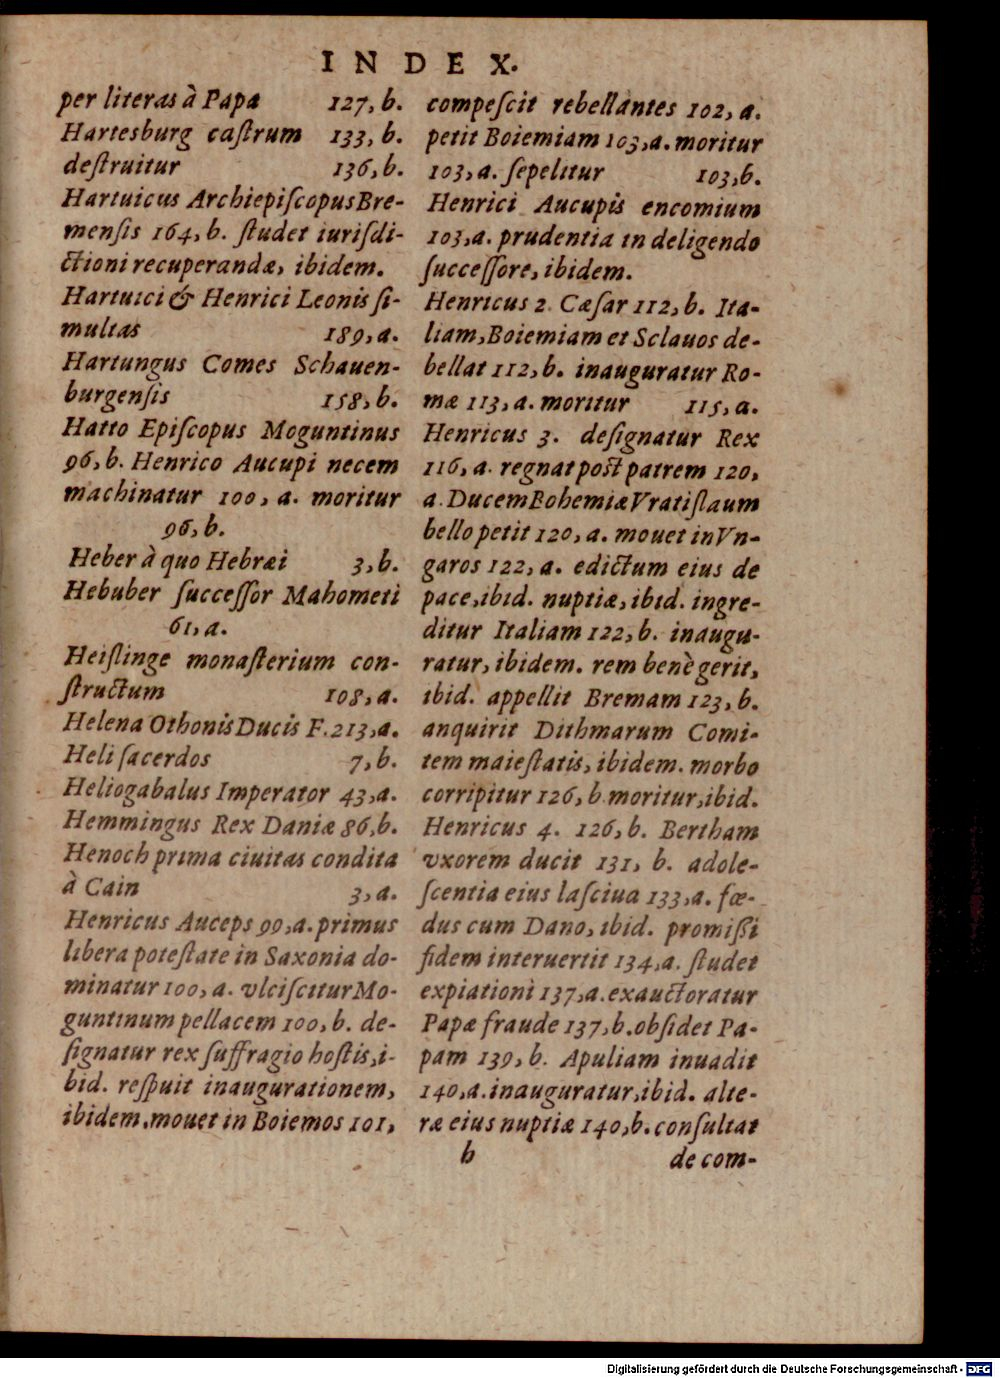 INDEX.
per literas à Papa 127, b.
Hartesburg caſtrum 133, b.
deſtruitur 136, b.
Hartuicus Archiepiſcopus Bre-
menſis 164, b. ſtudet iuriſdi-
ctioni recuperandæ, ibidem.
Hartuici & Henrici Leonis ſi-
multas 189, a.
Hartungus Comes Schauen-
burgenſis 158, b.
Hatto Epiſcopus Moguntinus
96, b. Henrico Aucupi necem
machinatur 100, a. moritur
96, b.
Heber à quo Hebræi 3, b.
Hebuber ſucceſſor Mahometi
61, a.
Heiſlinge monaſterium con-
ſtructum 108, a.
Helena Othonis Ducis F. 213, a.
Heli ſacerdos 7, b.
Heliogabalus Imperator 43, a.
Hemmingus Rex Daniæ 86, b.
Henoch prima ciuitas condita
à Cain 3, a.
Henricus Auceps 99, a. primus
libera poteſtate in Saxonia do-
minatur 100, a. vlciſcitur Mo-
guntinum pellacem 100, b. de-
ſignatur rex ſuffragio hoſtis, i-
bid. reſpuit inaugurationem,
ibidem. mouet in Boiemos 101,
compeſcit rebellantes 102, a.
petit Boiemiam 103, a. moritur
103, a. ſepelitur 103, b.
Henrici Aucupis encomium
103, a. prudentia in deligendo
ſucceſſore, ibidem.
Henricus 2. Cæſar 112, b. Ita-
liam, Boiemiam et Sclauos de-
bellat 112, b. inauguratur Ro-
mæ 113, a. moritur 115, a.
Henricus 3. deſignatur Rex
116, a. regnat poſt patrem 120,
a. Ducem Bohemiæ Vratiſlaum
bello petit 120, a. mouet in Vn-
garos 122, a. edictum eius de
pace, ibid. nuptiæ, ibid. ingre-
ditur Italiam 122, b. inaugu-
ratur, ibidem. rem benè gerit,
ibid. appellit Bremam 123, b.
anquirit Dithmarum Comi-
tem maieſtatis, ibidem. morbo
corripitur 126, b. moritur, ibid.
Henricus 4. 126, b. Bertham
vxorem ducit 131, b. adole-
ſcentia eius laſciua 133, a. fœ-
dus cum Dano, ibid. promiſſi
fidem interuertit 134, a. ſtudet
expiationi 137, a. exauctoratur
Papæ fraude 137, b. obſidet Pa-
pam 139, b. Apuliam inuadit
140, a. inauguratur, ibid. alte-
ræ eius nuptiæ 140, b. conſultat
b de com-
Digitalisierung gefördert durch die Deutsche Forschungsgemeinschaft - DFG